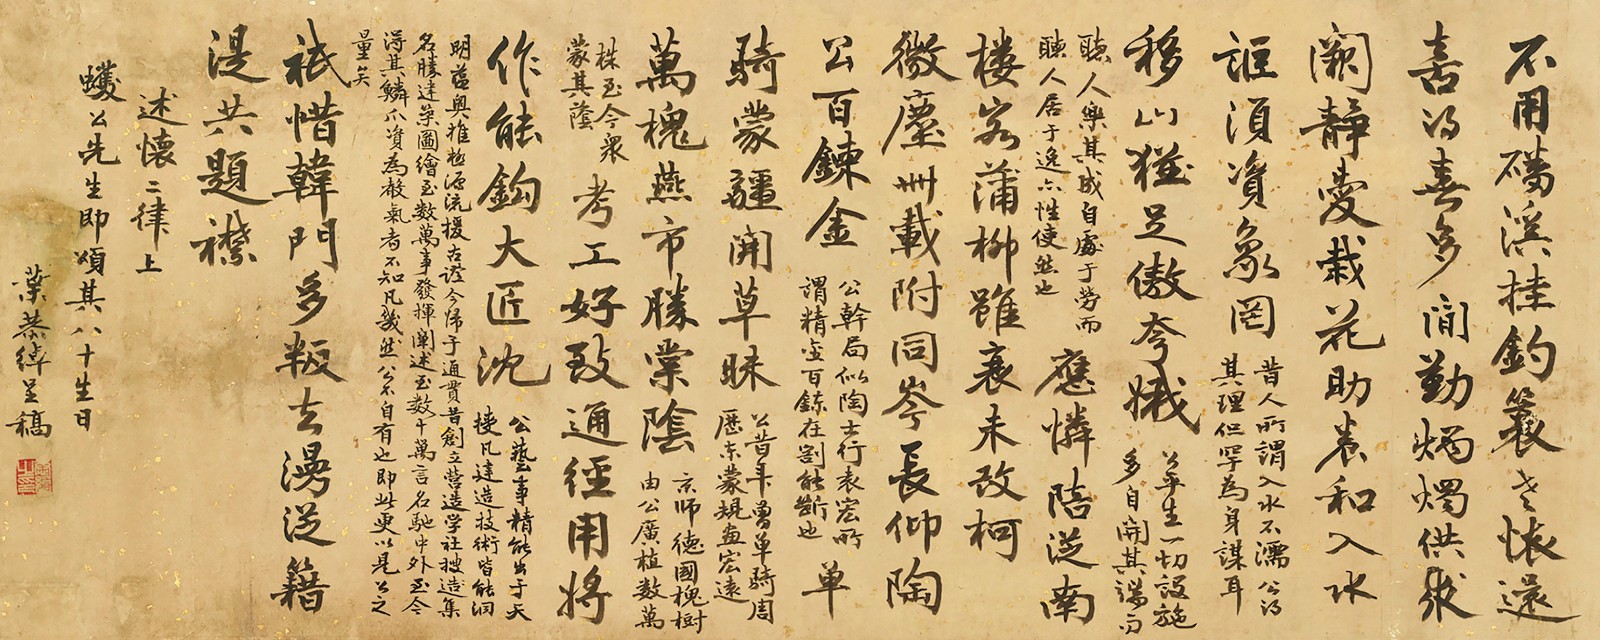 不用磻溪挂釣簑老懷還
喜日喜多閒勤燭燭供
闌靜愛栽花助養和入水
詎須資象罔昔人所謂入水不濡公得
其理但罕為身謀耳
移山猶足傲夸娥公平生一切設施
多自開其端而
聽人樂其成自處于勞而
聽人居于逸亦性使然也應憐陪從南
樓客蒲柳雖衰未改柯
微塵卅載附同岑長仰陶
公百鍊金公幹局似陶士行表宏所
謂精金百鍊在割能斷也單
騎蒙疆開草昧公昔年曾單騎周
歷東蒙規畫宏遠
萬槐燕市勝棠陰京師德國槐樹
由公廣植數萬
株至今眾
蒙其蔭考工好致通經用將
作能鈎大匠沈公藝事精能出于天
授凡建造技術皆能洞
明蘊奧推極源流援古證今歸于通貫昔創立營造學社搜造集
名勝建築圖繪至數萬事發揮闡述至數十萬言名馳中外至今
得其鱗爪資為𣪠氣者不知凡幾然公不自有也即此更以見公之
量矣
祇惜韓門多叛去漫從籍
湜共題襟
述懷二律上
蠖公先生即頌其八十生日
葉恭綽呈稿